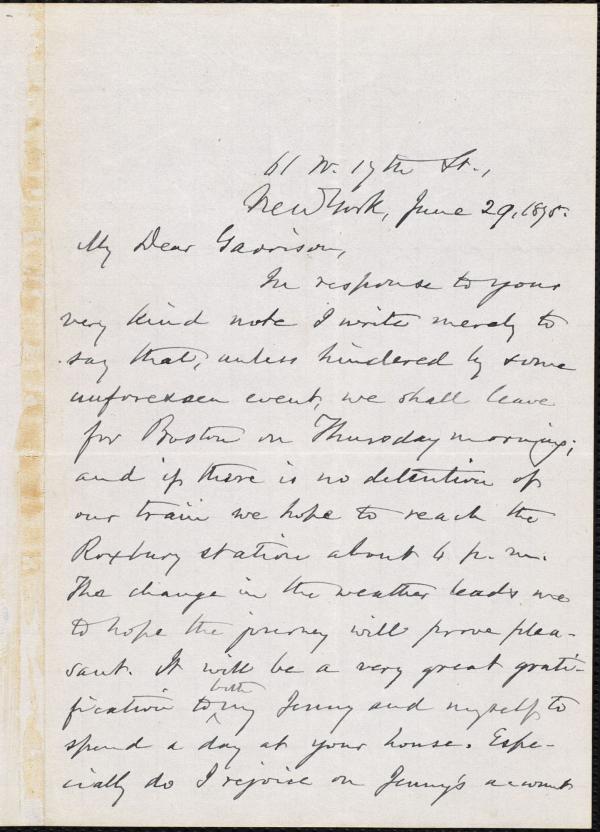 61 W. 19th St.,
New York, June 29, 1875.
My Dear Garrison,
In response to your
very kind note I write merely to
say that, unless hindered by some
unforeseen event, we shall leave
for Boston on Thursday morning;
and if there is no detention of
our train we hope to reach the
Roxbury station about 4 p.m.
The change in the weather leads me
to hope the journey will prove plea-
sant. It will be a very great grati-
fication to both my Jenny and myself to
spend a day at your house. Espe-
cially do I rejoice on Jenny's account